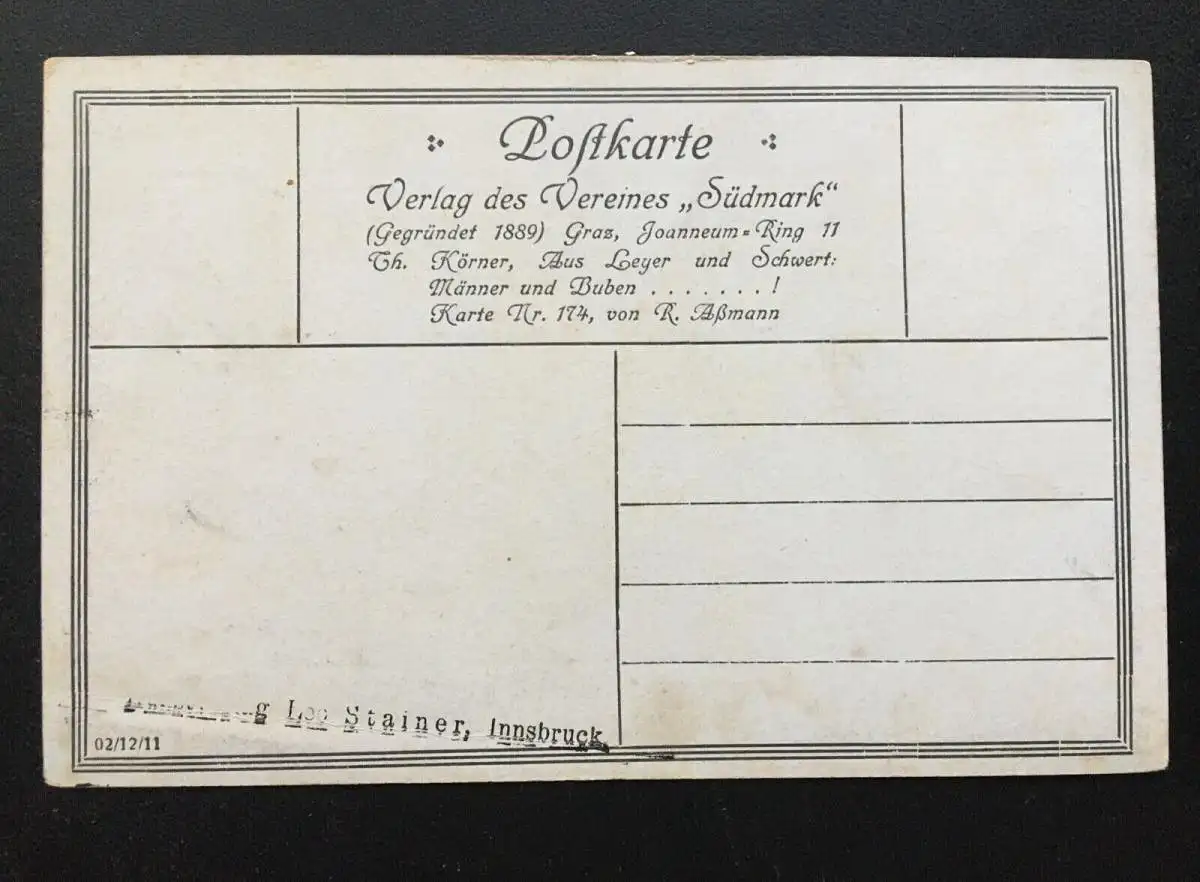 Postkarte
Verlag des Vereines „Südmark“
(Gegründet 1889) Graz, Joanneum=Ring 11
Th. Körner, Aus Leyer und Schwert:
Männer und Buben . . . . . . . !
Karte Nr. 174, von R. Aßmann
Leo Stainer, Innsbruck
02/12/11